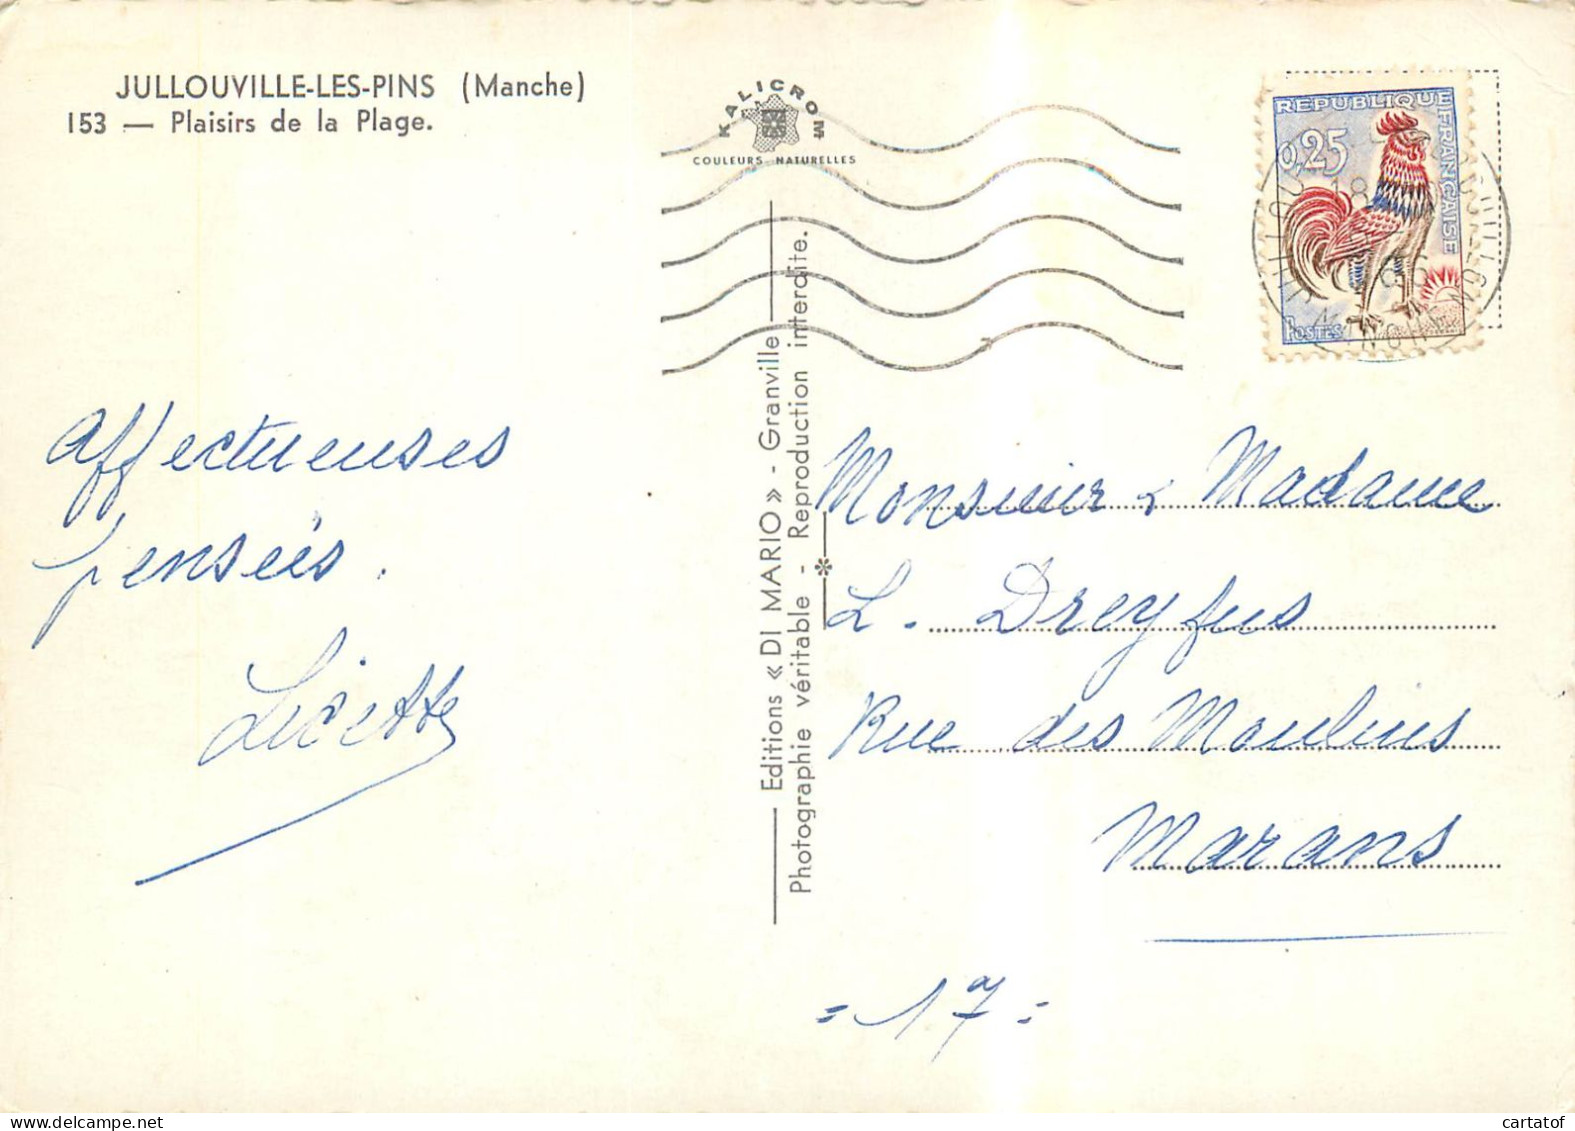 JULLOUVILLE-LES-PINS (Manche)
153 — Plaisirs de la Plage.
KALICROM
COULEURS NATURELLES
REPUBLIQUE FRANÇAISE
0,25
POSTES
18
Affectueuses
pensées.
Editions « DI MARIO » - Granville
Photographie véritable - Reproduction interdite.
Monsieur & Madame
L. Dreyfus
Rue des Moulins
Marans
= 17 =
cartatof